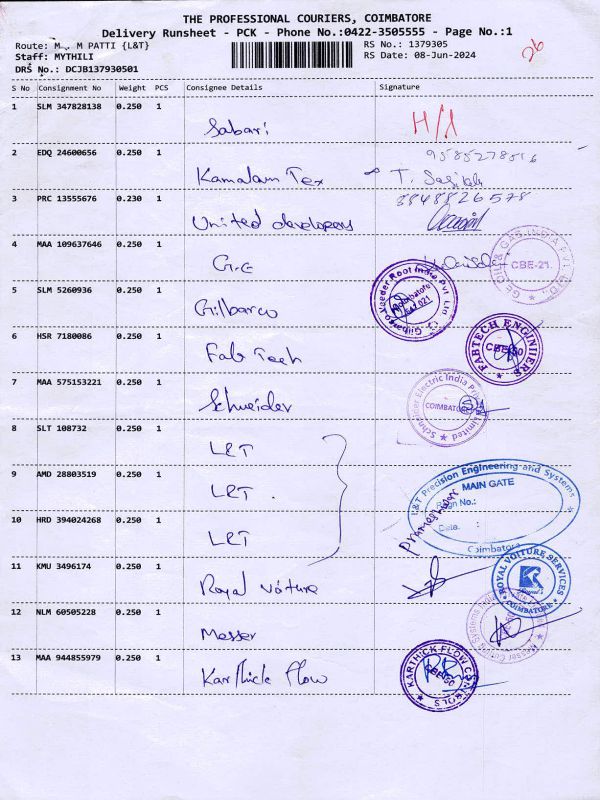 THE PROFESSIONAL COURIERS, COIMBATORE
Delivery Runsheet - PCK - Phone No.:0422-3505555 - Page No.:1
Route: M . M PATTI {L&T}
Staff: MYTHILI
DRS No.: DCJB137930501
RS No.: 1379305
RS Date: 08-Jun-2024
26
S No Consignment No Weight PCS Consignee Details Signature
1 SLM 347828138 0.250 1 Sabari
2 EDQ 24600656 0.250 1 Kamalam Tex
3 PRC 13555676 0.230 1 United developers
4 MAA 109637646 0.250 1 G.E
CBE-21
5 SLM 5260936 0.250 1 Gilbarco
Gilbarco Veeder Root India Pvt. Ltd
Coimbatore
641 021
6 HSR 7180086 0.250 1 Fab Tech
FABTECH ENGINIIERS
CBE-50
7 MAA 575153221 0.250 1 Schneider
Schneider Electric India Private Limited
COIMBATORE
8 SLT 108732 0.250 1 L&T
9 AMD 28803519 0.250 1 L&T .
L&T Precision Engineering and Systems
MAIN GATE
Regn No.:
Date. :
Coimbatore
10 HRD 394024268 0.250 1 L&T
11 KMU 3496174 0.250 1 Royal voiture
ROYAL VOITURE SERVICES
COIMBATORE
12 NLM 60505228 0.250 1 Messer
13 MAA 944855979 0.250 1 Karthick Flow
KARTHICK FLOW CONTROLS
CBE-50